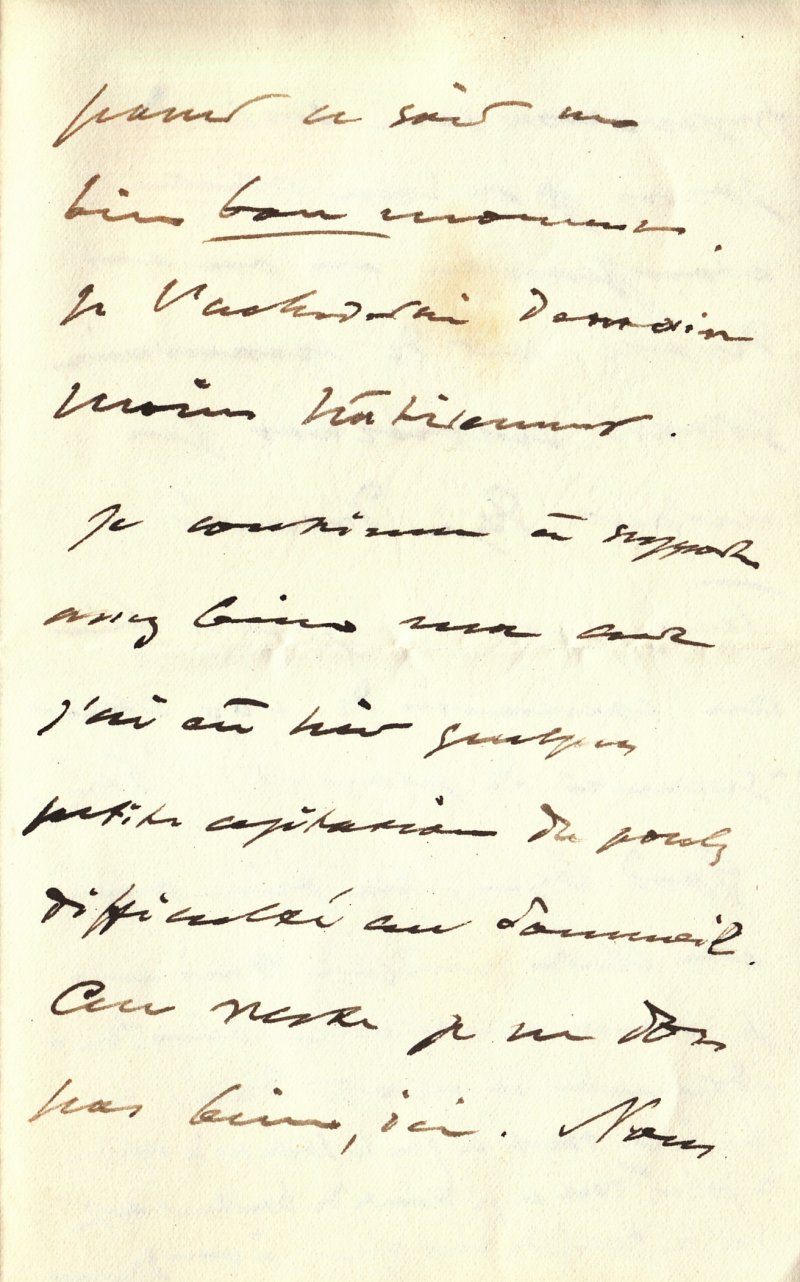 parut ce soir un
bien bon moment.
Je l'achèverai demain
moins hâtivement.
Je continue à supporter
assez bien ma cure
j'ai eu hier quelques
petite agitation du pouls
difficulté au sommeil.
Au reste je ne dors
pas bien, ici. Nous